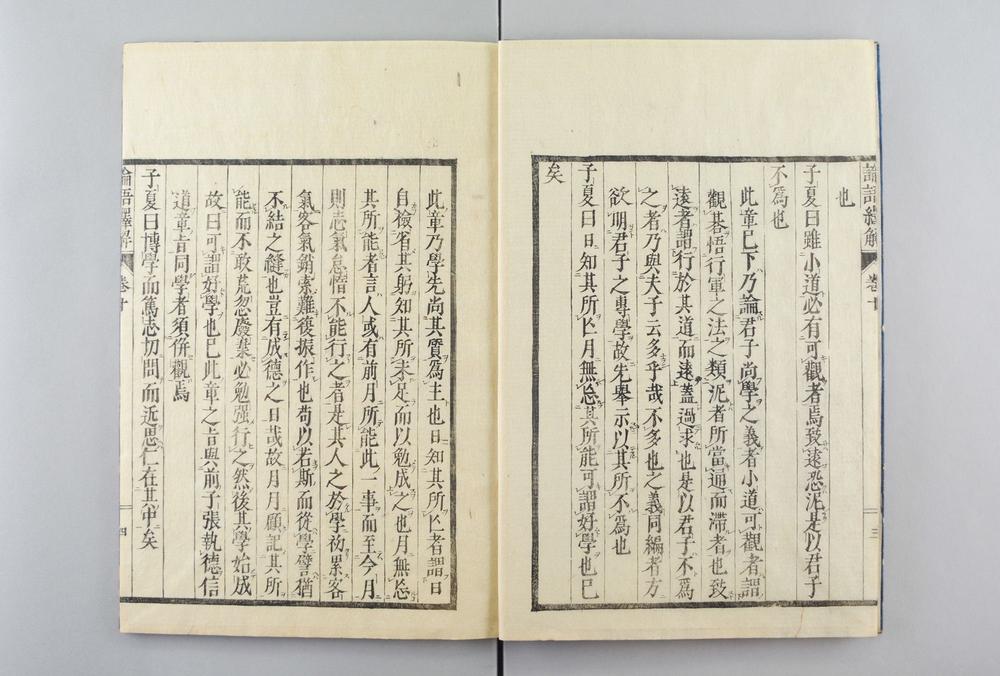 論語繹解 卷十 三
也
子夏曰雖小道必有可觀者焉致遠恐泥是以君子
不爲也
此章已下乃論君子尚學之義者小道可觀者謂
觀碁悟行軍之法之類泥者所當通而滯者也致
遠者謂行於其道而遠蓋過求也是以君子不爲
之者乃與夫子云多乎哉不多也之義同編者方
欲明君子之專學故先舉示以其所不爲也
子夏曰日知其所亡月無忘其所能可謂好學也已
矣
此章乃學先尚其質爲主也日知其所亡者謂日
自檢省其躬知其所未足而以勉成之也月無忘
其所能者言人或有前月所能此一事而至今月
則志氣怠惰不能行之者是其人之於學初累客
氣客氣銷索難復振作也苟以若斯而從學譬猶
不結之縫也豈有成德之日哉故月月顧記其所
能而不敢荒忽廢棄必勉强行之然後其學始成
故曰可謂好學也已此章之旨與前子張執德信
道章旨同學者須併觀焉
子夏曰博學而篤志切問而近思仁在其中矣
論語繹解 卷十 四